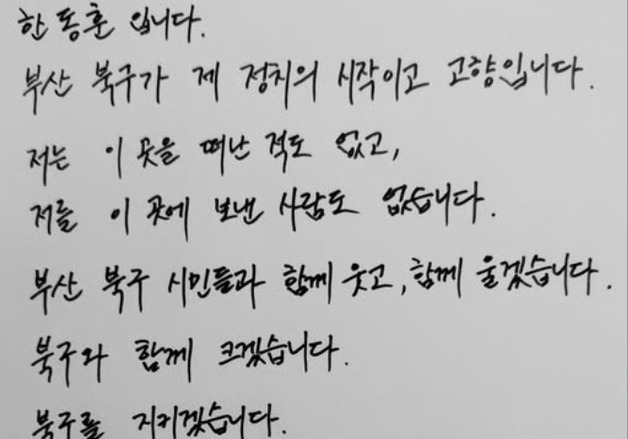 한동훈 입니다.
부산 북구가 제 정치의 시작이고 고향입니다.
저는 이 곳을 떠난 적도 없고,
저를 이 곳에 보낸 사람도 없습니다.
부산 북구 시민들과 함께 웃고, 함께 울겠습니다.
북구와 함께 크겠습니다.
북구를 지키겠습니다.